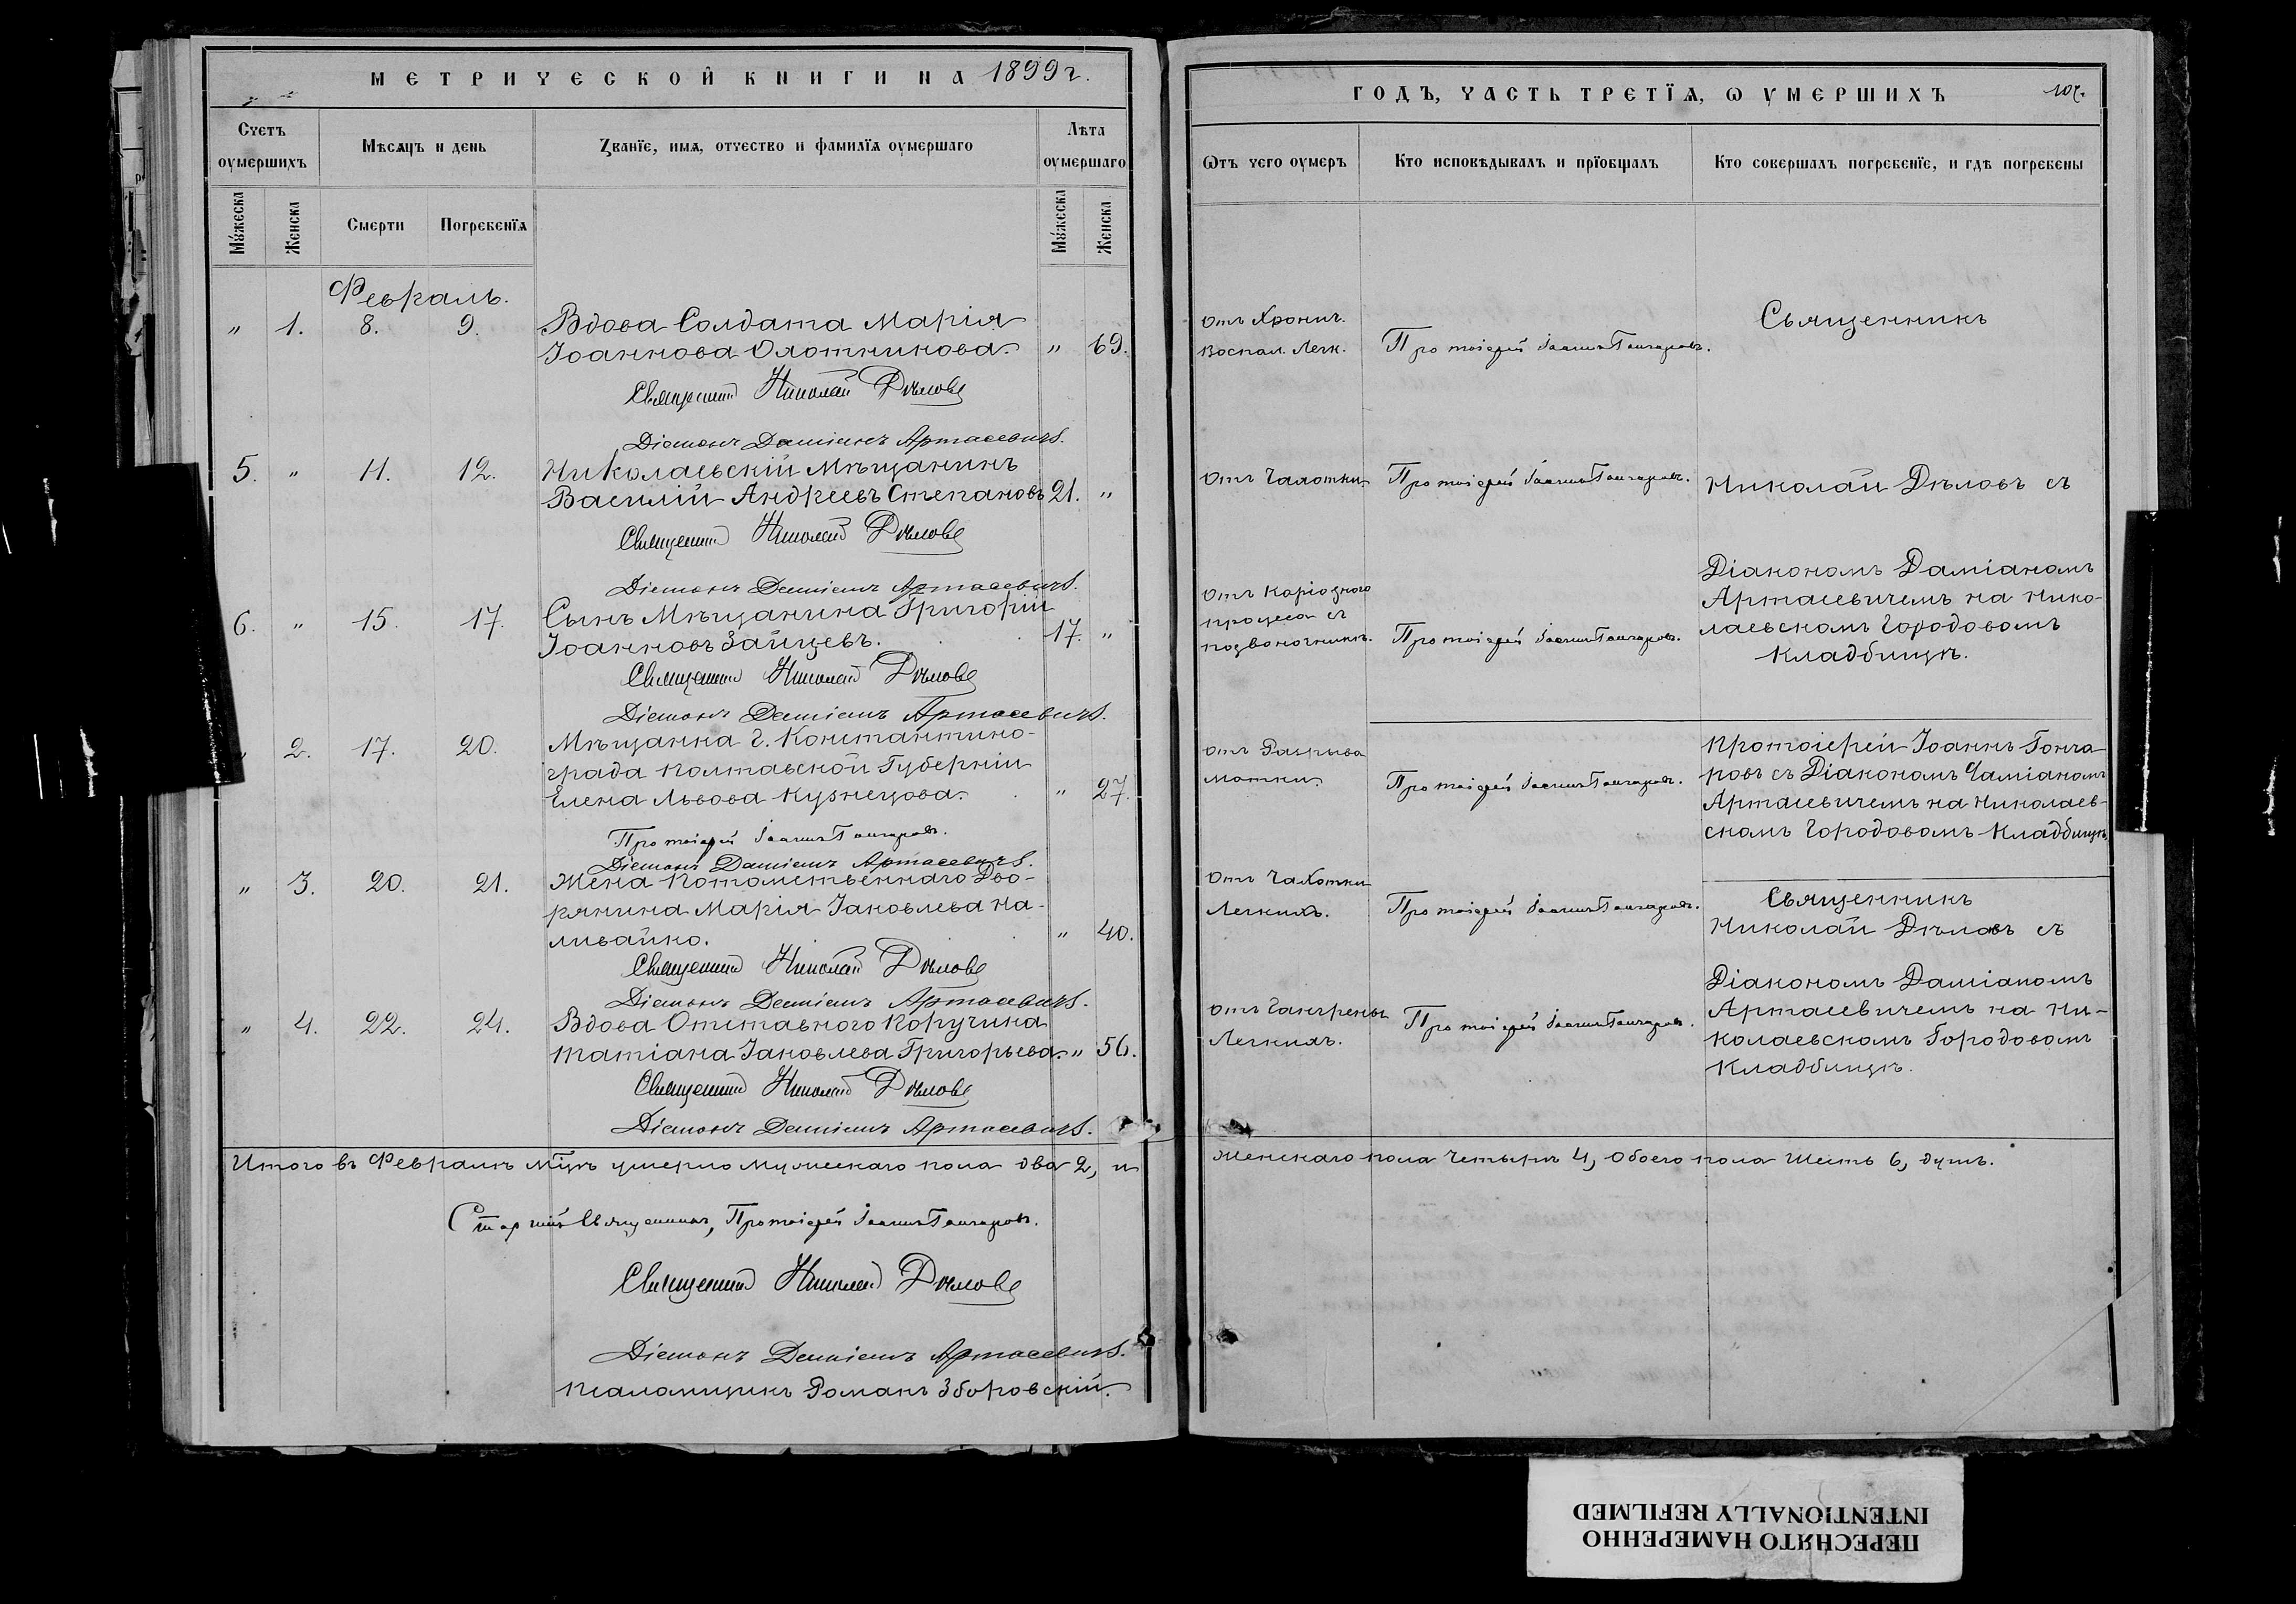 МЕТРИЧЕСКОЙ КНИГИ НА 1899 г.
Счетъ оумершихъ
Мѣсяцъ и день
Званїе, имя, отчество и фамилїя оумершаго
Лѣта оумершаго
Мужеска
Женска
Смерти
Погребенїя
Мужеска
Женска
Февраль.
" 1. 8. 9. Вдова Солдата Марія
Іоаннова Охотникова. " 69.
Священникъ Николай Дѣловъ
Діаконъ Даміанъ Артасевичъ.
5. " 11. 12. Николаевскій Мѣщанинъ
Василій Андреевъ Степановъ 21. "
Священникъ Николай Дѣловъ
Діаконъ Даміанъ Артасевичъ.
6. " 15. 17. Сынъ Мѣщанина Григорій
Іоанновъ Зайцевъ. 17. "
Священникъ Николай Дѣловъ
Діаконъ Даміанъ Артасевичъ.
" 2. 17. 20. Мѣщанка г. Константино-
града Полтавской Губерніи
Елена Львова Кузнецова. " 27.
Протоіерей Іоаннъ Гончаровъ.
Діаконъ Даміанъ Артасевичъ.
" 3. 20. 21. Жена Потомственнаго Дво-
рянина Марія Іаковлева На-
ливайко. " 40.
Священникъ Николай Дѣловъ
Діаконъ Даміанъ Артасевичъ.
" 4. 22. 24. Вдова Отставного Поручика
Татіана Іаковлева Григорьева. " 56.
Священникъ Николай Дѣловъ
Діаконъ Даміанъ Артасевичъ.
Итого въ Февралѣ мѣцѣ умерло мужескаго пола два 2, и
Старшій Священникъ, Протоіерей Іоаннъ Гончаровъ.
Священникъ Николай Дѣловъ
Діаконъ Даміанъ Артасевичъ.
Псаломщикъ Романъ Зборовскій.
ГОДЪ, ЧАСТЬ ТРЕТЇЯ, Ѡ УМЕРШИХЪ
Ѿтъ чего оумеръ
Кто исповѣдывалъ и прїобщалъ
Кто совершалъ погребенїе, и гдѣ погребены
Отъ Хронич.
Воспал. Легк.
Протоіерей Іоаннъ Гончаровъ.
Священникъ
Отъ Чахотки.
Протоіерей Іоаннъ Гончаровъ.
Николай Дѣловъ съ
Діакономъ Даміаномъ
Артасевичемъ на Нико-
лаевскомъ Городовомъ
Кладбищѣ.
Отъ Каріознаго
процеса въ
позвоночникѣ.
Протоіерей Іоаннъ Гончаровъ.
Отъ Разрыва
матки.
Протоіерей Іоаннъ Гончаровъ.
Протоіерей Іоаннъ Гонча-
ровъ съ Діакономъ Даміаномъ
Артасевичемъ на Николаев-
скомъ Городовомъ Кладбищѣ
Отъ Чахотки
Легкихъ.
Протоіерей Іоаннъ Гончаровъ.
Священникъ
Николай Дѣловъ съ
Діакономъ Даміаномъ
Артасевичемъ на Ни-
колаевскомъ Городовомъ
Кладбищѣ.
Отъ Гангрены
Легкихъ.
Протоіерей Іоаннъ Гончаровъ.
Женскаго пола Четыре 4, Обоего пола Шесть 6, душъ.
ПЕРЕСНЯТО НАМЕРЕННО
INTENTIONALLY REFILMED